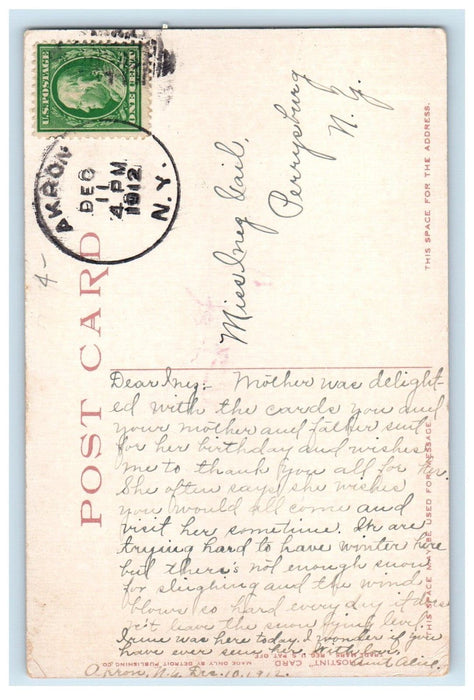 U.S. POSTAGE
ONE CENT
AKRON
DEC
11
4 PM
1912
N.Y.
4-
POST CARD
Miss Inez Gail,
Perrysburg
N.Y.
THIS SPACE FOR THE ADDRESS.
THIS SPACE MAY BE USED FOR MESSAGE.
Dear Inez:- Mother was delight-
ed with the cards you and
your mother and father sent
for her birthday and wishes
me to thank you all for her.
She often says she wishes
you would all come and
visit her sometime. We are
trying hard to have winter here
but there's not enough snow
for sleighing and the wind
blows so hard every day it does
n't leave the snow lying level.
was here today. I wonder if you
have ever seen her. With love,
Aunt Alice.
Akron, N.Y. Dec. 10, 1912.
"PHOSTINT" CARD
TRADE MARK REG. U.S. PAT. OFF.
MADE ONLY BY DETROIT PUBLISHING CO.